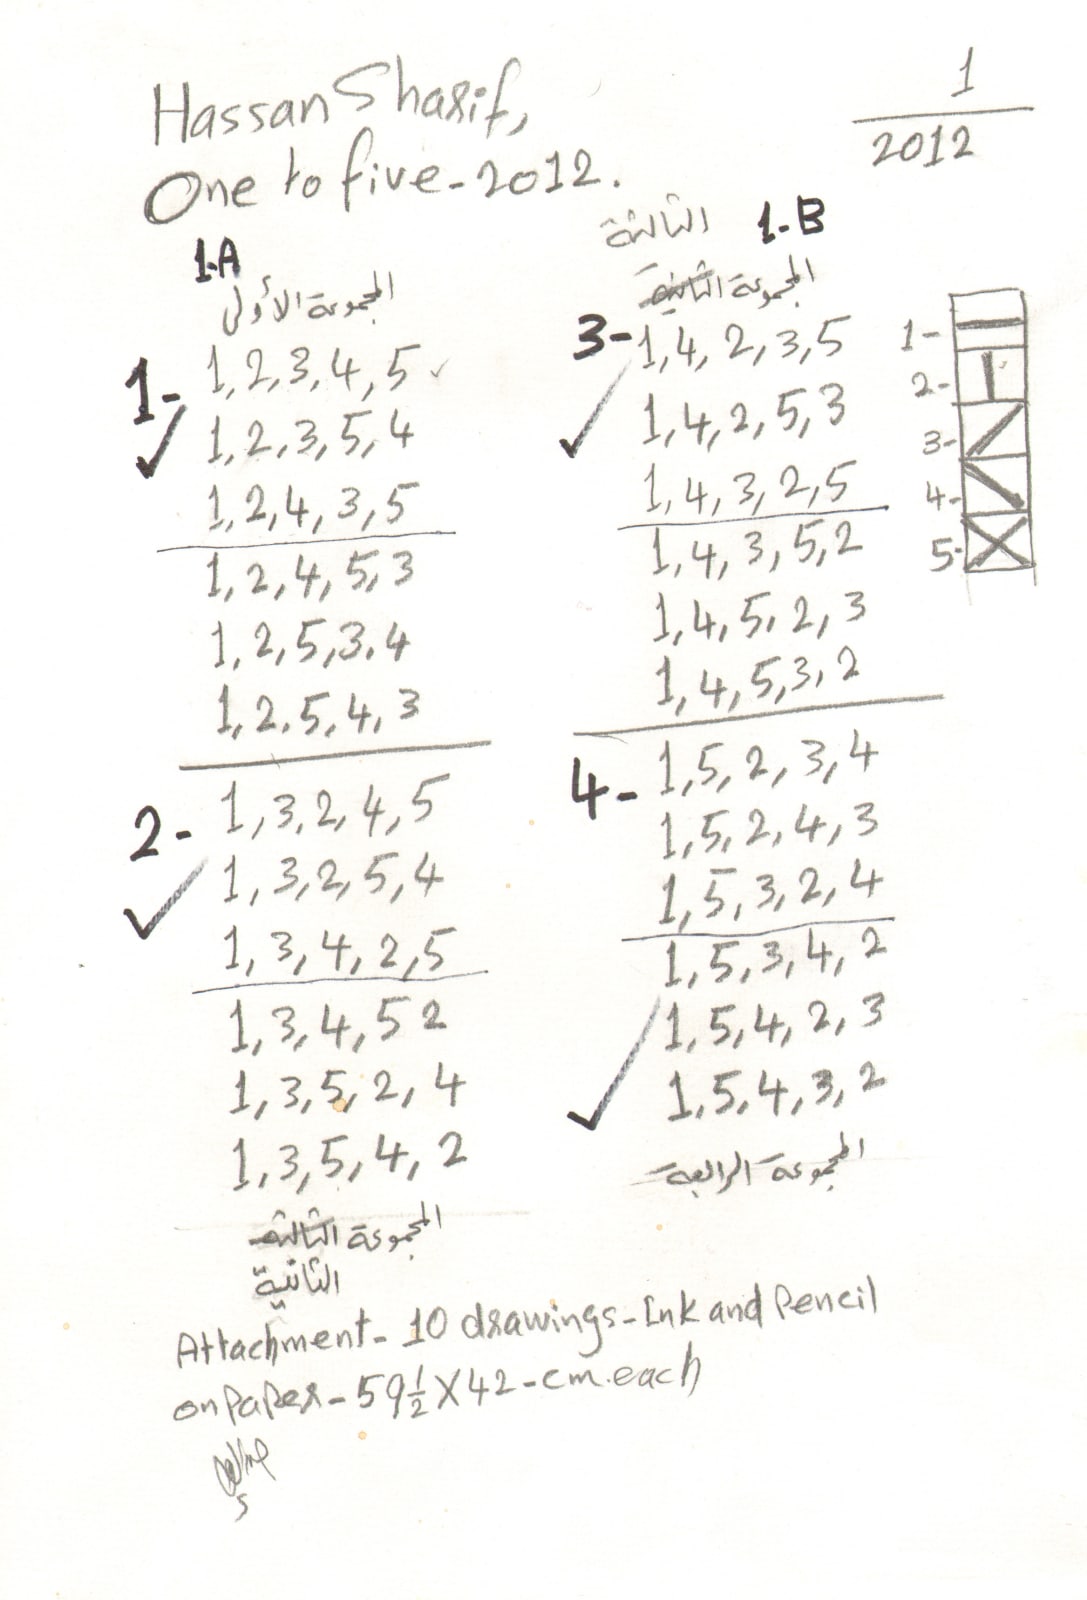 Hassan Sharif,
One to five - 2012.
1
2012
1-A
المجموعة الأولى
1-
1, 2, 3, 4, 5
1, 2, 3, 5, 4
1, 2, 4, 3, 5
1, 2, 4, 5, 3
1, 2, 5, 3, 4
1, 2, 5, 4, 3
2-
1, 3, 2, 4, 5
1, 3, 2, 5, 4
1, 3, 4, 2, 5
1, 3, 4, 5 2
1, 3, 5, 2, 4
1, 3, 5, 4, 2
المجموعة الثالثة
الثانية
الثالثة 1-B
المجموعة الثانية
3-
1, 4, 2, 3, 5
1, 4, 2, 5, 3
1, 4, 3, 2, 5
1, 4, 3, 5, 2
1, 4, 5, 2, 3
1, 4, 5, 3, 2
4-
1, 5, 2, 3, 4
1, 5, 2, 4, 3
1, 5, 3, 2, 4
1, 5, 3, 4, 2
1, 5, 4, 2, 3
1, 5, 4, 3, 2
المجموعة الرابعة
1-
2-
3-
4-
5-
Attachment - 10 drawings - Ink and Pencil
on Paper - 59 1/2 X 42 - cm. each